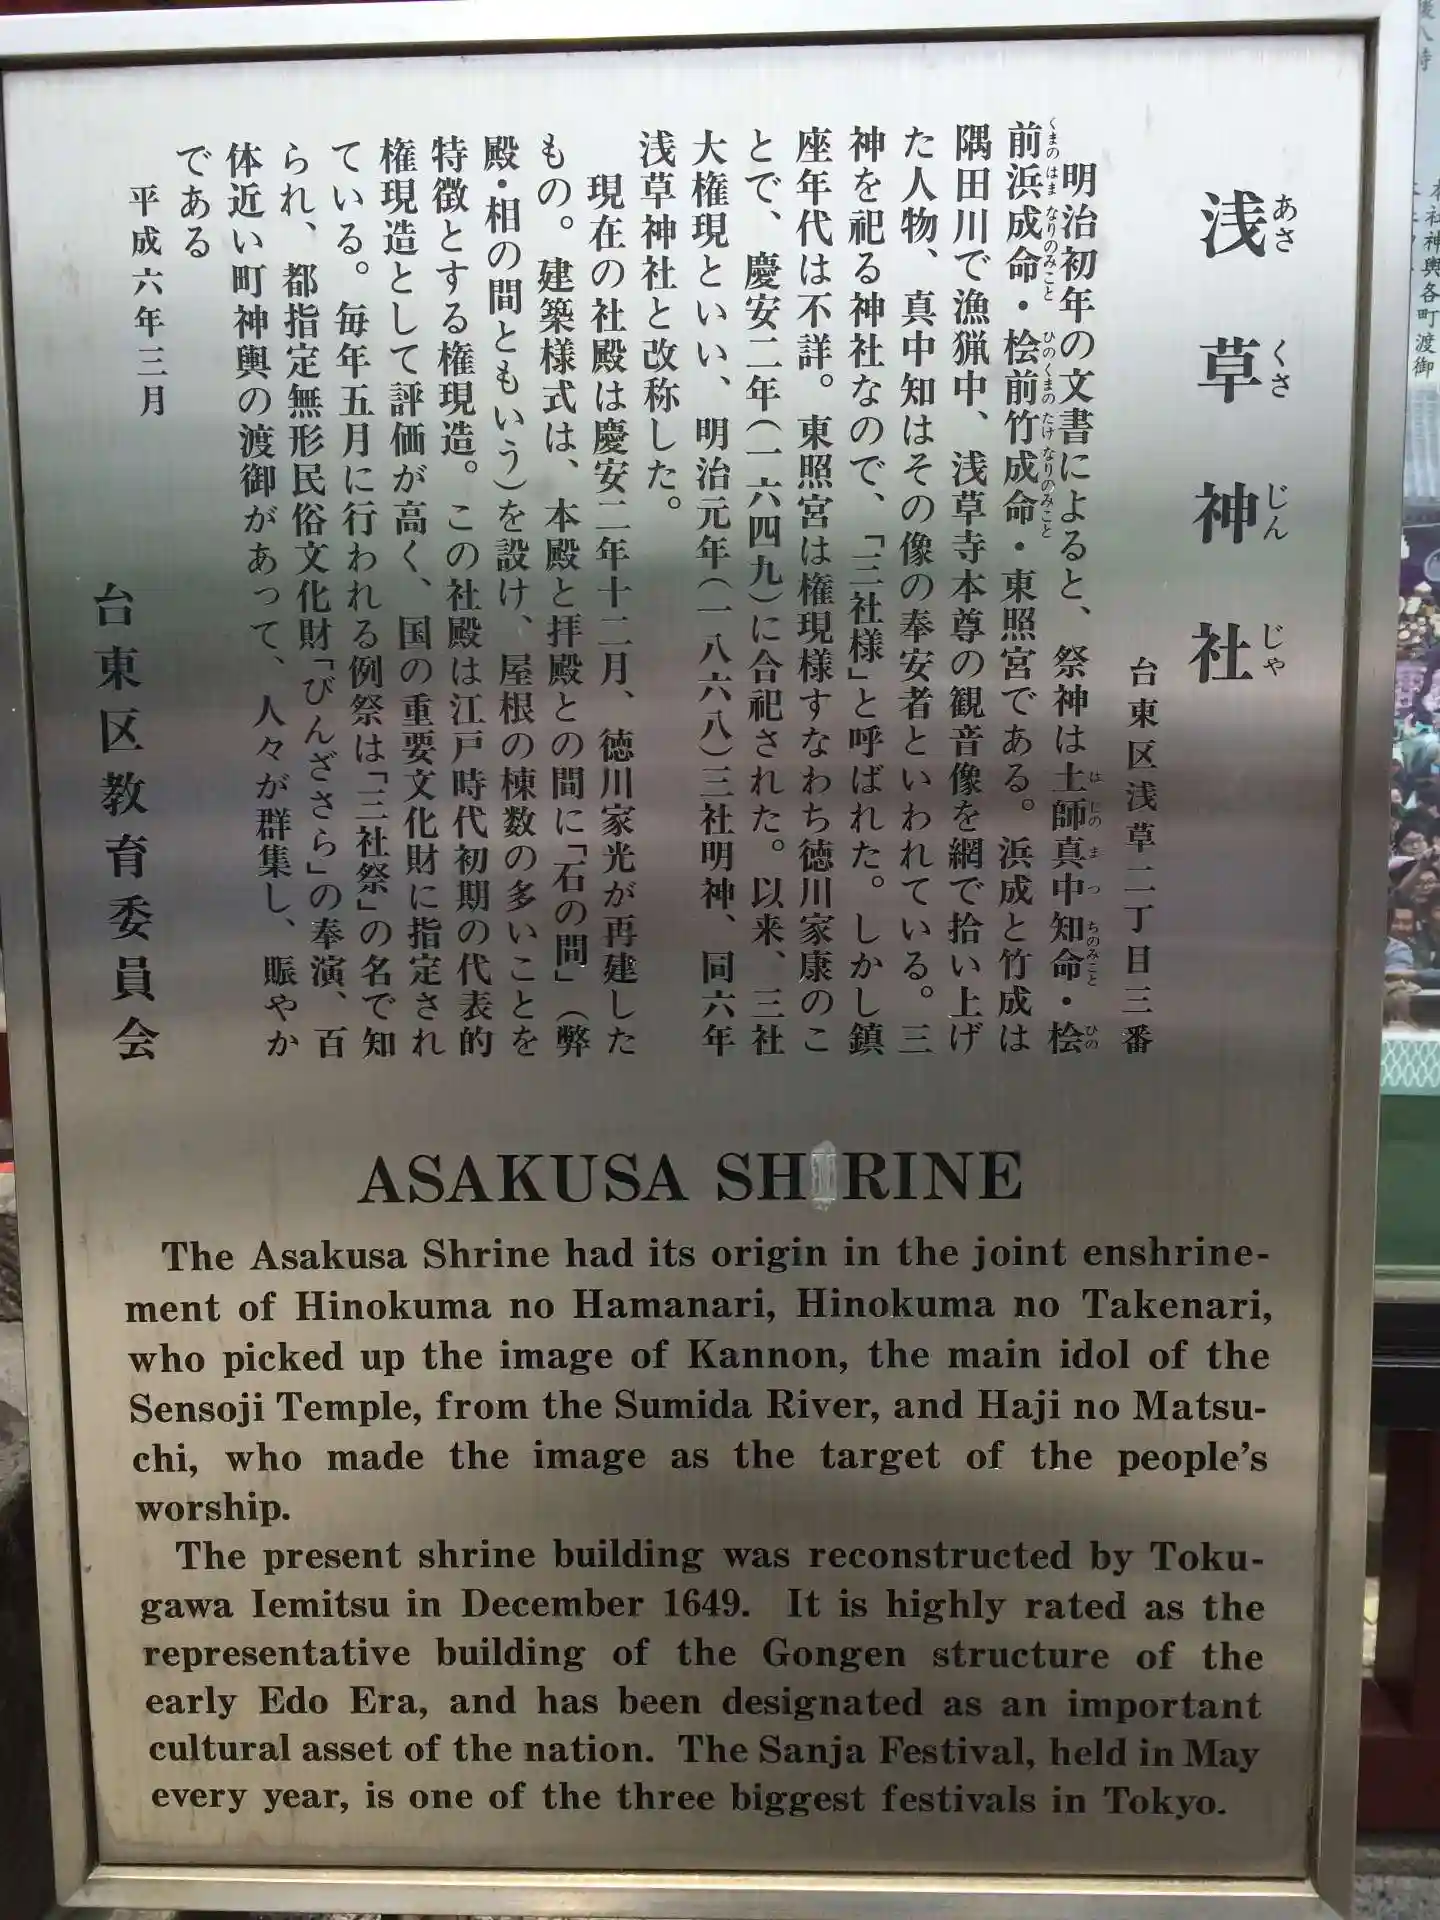 浅草神社
あさくさじんじゃ
台東区浅草二丁目三番
明治初年の文書によると、祭神は土師真中知命・桧
はじのまつちのみこと
ひの
前浜成命・桧前竹成命・東照宮である。浜成と竹成は
くまのはまなりのみこと
ひのくまのたけなりのみこと
隅田川で漁猟中、浅草寺本尊の観音像を網で拾い上げ
た人物、真中知はその像の奉安者といわれている。三
神を祀る神社なので、「三社様」と呼ばれた。しかし鎮
座年代は不詳。東照宮は権現様すなわち徳川家康のこ
とで、慶安二年(一六四九)に合祀された。以来、三社
大権現といい、明治元年(一八六八)三社明神、同六年
浅草神社と改称した。
現在の社殿は慶安二年十二月、徳川家光が再建した
もの。建築様式は、本殿と拝殿との間に「石の間」(弊
殿・相の間ともいう)を設け、屋根の棟数の多いことを
特徴とする権現造。この社殿は江戸時代初期の代表的
権現造として評価が高く、国の重要文化財に指定され
ている。毎年五月に行われる例祭は「三社祭」の名で知
られ、都指定無形民俗文化財「びんざさら」の奉演、百
体近い町神輿の渡御があって、人々が群集し、賑やか
である
平成六年三月
台東区教育委員会
ASAKUSA SHRINE
The Asakusa Shrine had its origin in the joint enshrine-
ment of Hinokuma no Hamanari, Hinokuma no Takenari,
who picked up the image of Kannon, the main idol of the
Sensoji Temple, from the Sumida River, and Haji no Matsu-
chi, who made the image as the target of the people's
worship.
The present shrine building was reconstructed by Toku-
gawa Iemitsu in December 1649. It is highly rated as the
representative building of the Gongen structure of the
early Edo Era, and has been designated as an important
cultural asset of the nation. The Sanja Festival, held in May
every year, is one of the three biggest festivals in Tokyo.
本社神輿各町渡御